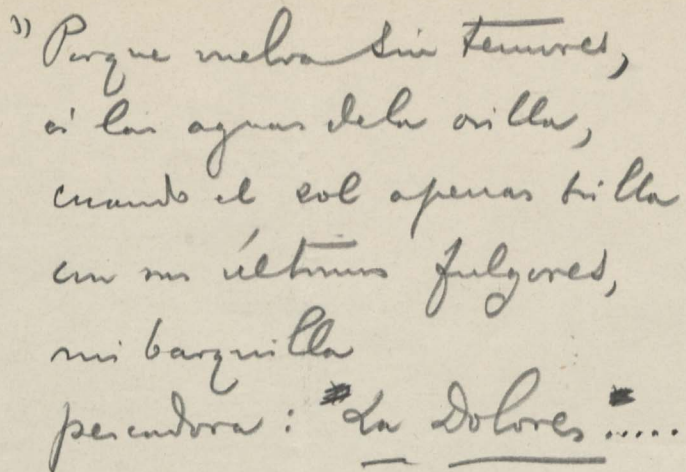 " Porque vuelva sin temores,
á las aguas de la orilla,
cuando el sol apenas brilla
con sus últimos fulgores,
mi barquilla
pescadora: "La Dolores".....